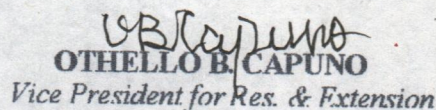 OBCapuno
OTHELLO B. CAPUNO
Vice President for Res. & Extension